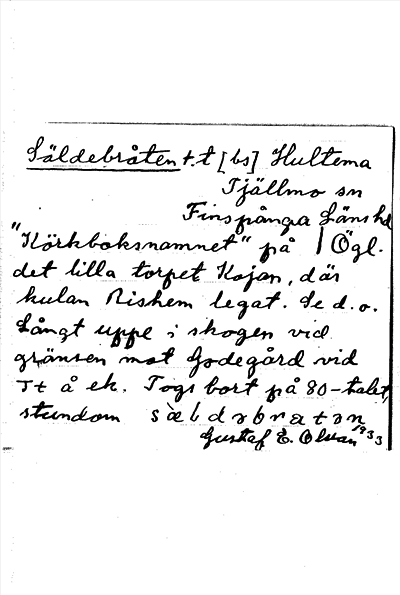 Säldebråten t.t [bs] Hultema
Tjällmo sn
Finspånga Läns hd
"Körkboksnamnet" på / Ögl.
det lilla torpet Kojan, där
kulan Rishem legat. Se d.o.
Långt uppe i skogen vid
gränsen mot Godegård vid
Tt å ek. Togs bort på 80-talet,
stundom sæ̀ldəbratən
Gustaf E. Olsson 1933